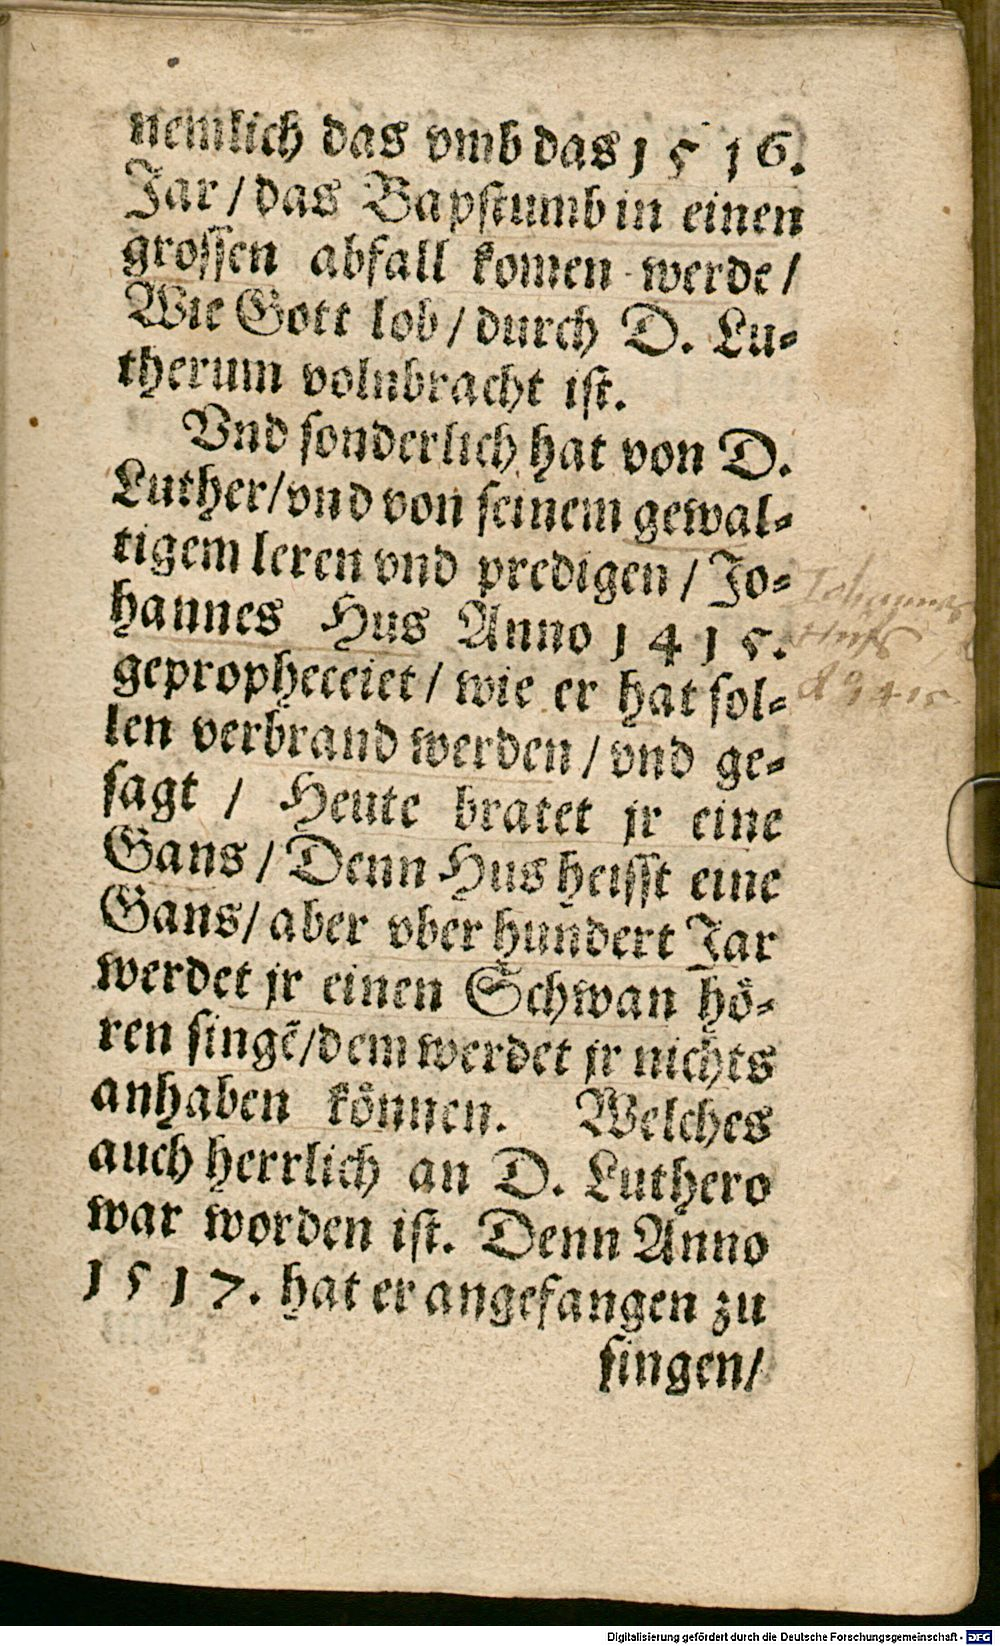 nemlich das vmb das 1 5 1 6.
Jar / das Bapſtumb in einen
groſſen abfall komen werde /
Wie Gott lob / durch D. Lu⸗
therum volnbracht iſt.
Vnd ſonderlich hat von D.
Luther / vnd von ſeinem gewal⸗
tigem leren vnd predigen / Jo⸗
hannes Hus Anno 1 4 1 5.
gepropheceiet / wie er hat ſol⸗
len verbrand werden / vnd ge⸗
ſagt / Heute bratet jr eine
Gans / Denn Hus heiſſt eine
Gans / aber vber hundert Jar
werdet jr einen Schwan hö⸗
ren ſingẽ / dem werdet jr nichts
anhaben können. Welches
auch herrlich an D. Luthero
war worden iſt. Denn Anno
1 5 1 7. hat er angefangen zu
ſingen /
Johannes
Huſs
1415.
Digitalisierung gefördert durch die Deutsche Forschungsgemeinschaft - DFG